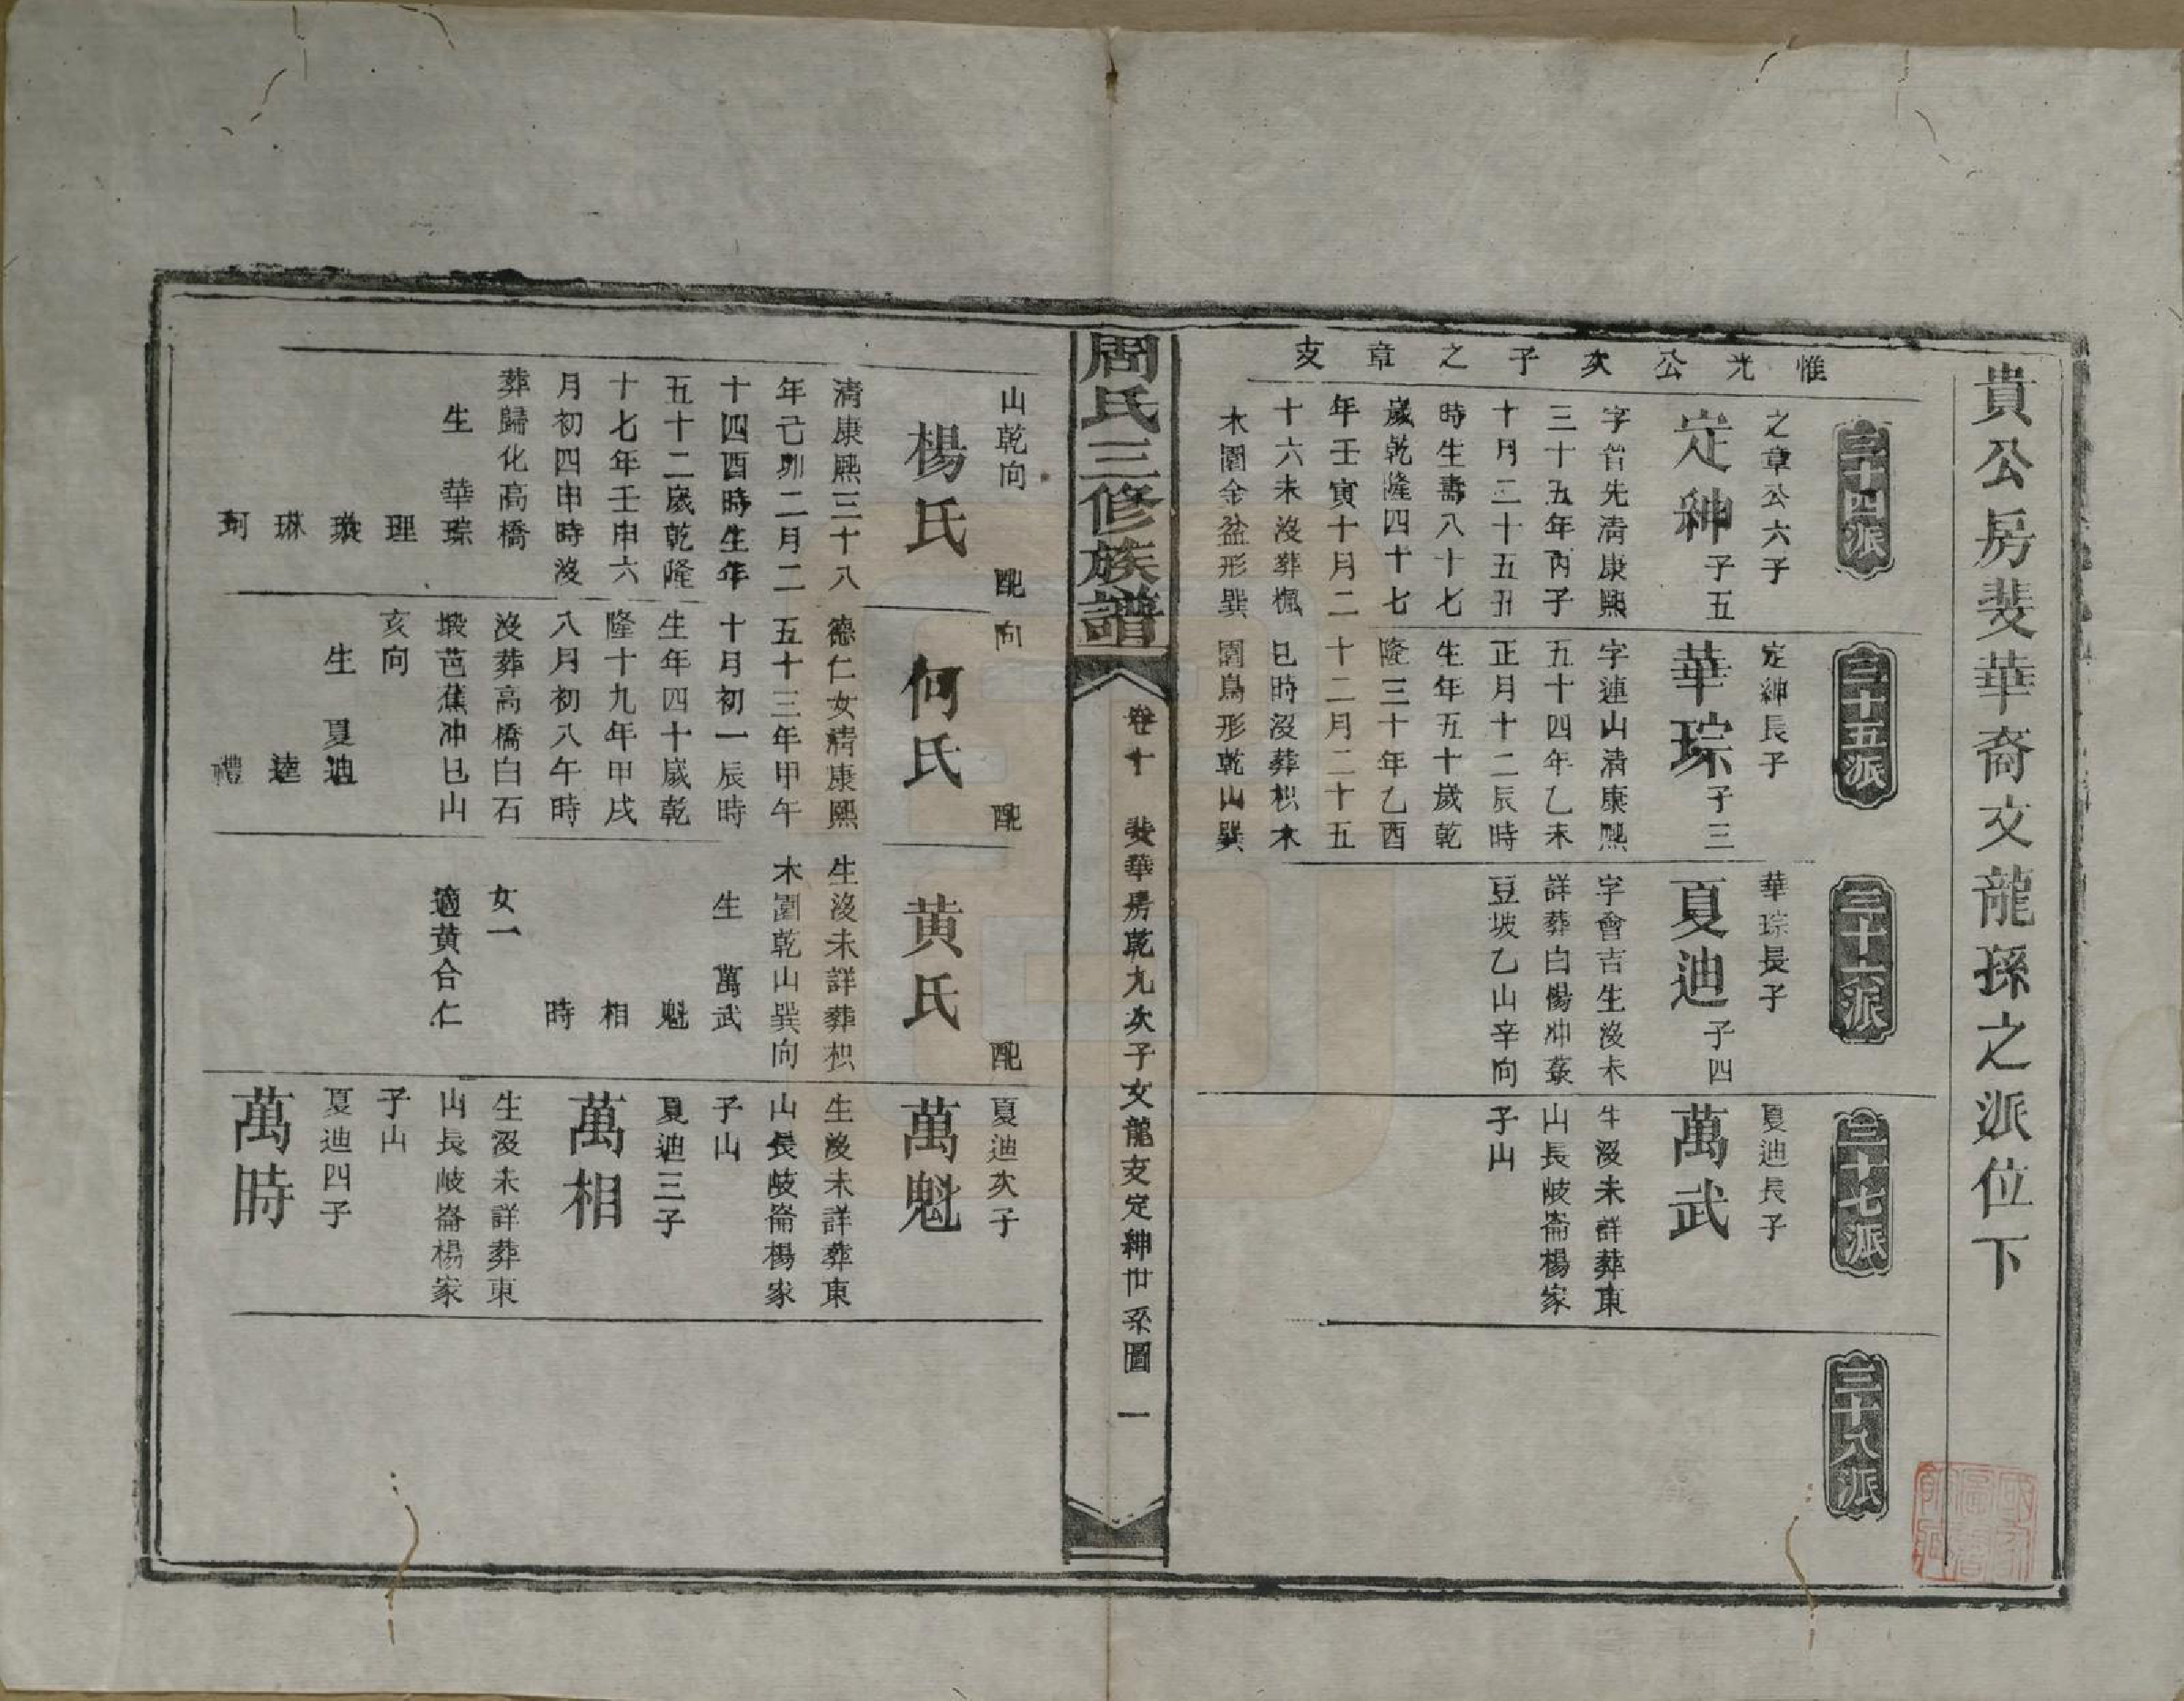 貴公房斐華裔文龍孫之派位下
惟光公次子之章支
三十四派
之章公六子
定紳 子五
字晉先清康熙
三十五年丙子
十月二十五丑
時生壽八十七
歲乾隆四十七
年壬寅十月二
十六未沒葬楓
木園金盆形巽
三十五派
定紳長子
華琮 子三
字連山清康熙
五十四年乙未
正月十二辰時
生年五十歲乾
隆三十年乙酉
十二月二十五
巳時沒葬枳木
園鳥形乾山巽
三十六派
華琮長子
夏迪 子四
字會吉生沒未
詳葬白楊冲蔉
豆坡乙山辛向
三十七派
夏迪長子
萬武
生沒未詳葬東
山長岐崙楊家
子山
三十八派
周氏三修族譜
卷十 斐華房乾九次子文龍支定紳世系圖 一
山乾向 配
楊氏
清康熙三十八
年己卯二月二
十四酉時生年
五十二歲乾隆
十七年壬申六
月初四申時沒
葬歸化高橋
生 華琮
理
璇
琳
珂
向 配
何氏
德仁女清康熙
五十三年甲午
十月初一辰時
生年四十歲乾
隆十九年甲戌
八月初八午時
沒葬高橋白石
塅芭蕉冲巳山
亥向
生 夏迪
達
禮
配
黄氏
生沒未詳葬枳
木園乾山巽向
生 萬武
魁
相
時
女一
適黄合仁
夏迪次子
萬魁
生沒未詳葬東
山長岐崙楊家
子山
夏迪三子
萬相
生沒未詳葬東
山長岐崙楊家
子山
夏迪四子
萬時